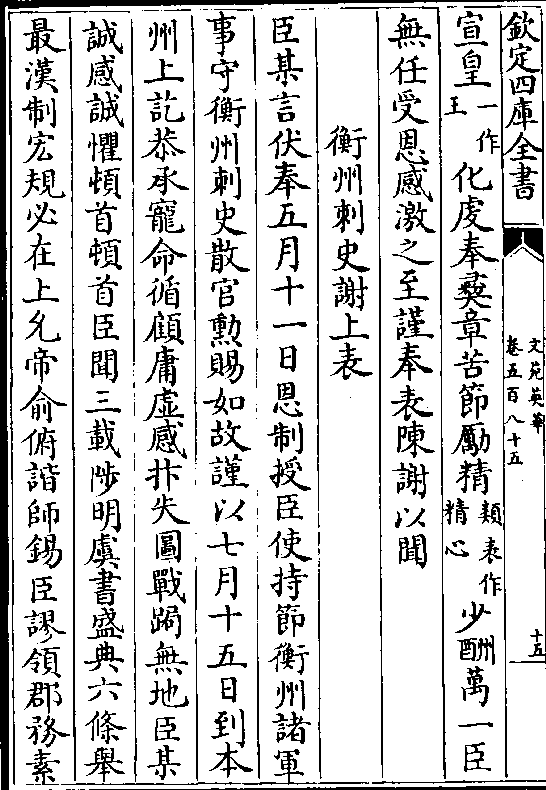 欽定四庫全書
文苑英華
卷五百八十五
十五
宣皇一作王化虔奉彞章苦節勵精類表作精心少酬萬一臣
無任受恩感激之至謹奉表陳謝以聞
衡州刺史謝上表
臣某言伏奉五月十一日恩制授臣使持節衡州諸軍
事守衡州刺史散官勲賜如故謹以七月十五日到本
州上訖恭承寵命循顧庸虚感抃失圖戰跼無地臣某
誠感誠懼頓首頓首臣聞三載陟明虞書盛典六條舉
最漢制宏規必在上允帝俞俯諧師錫臣謬領郡務素